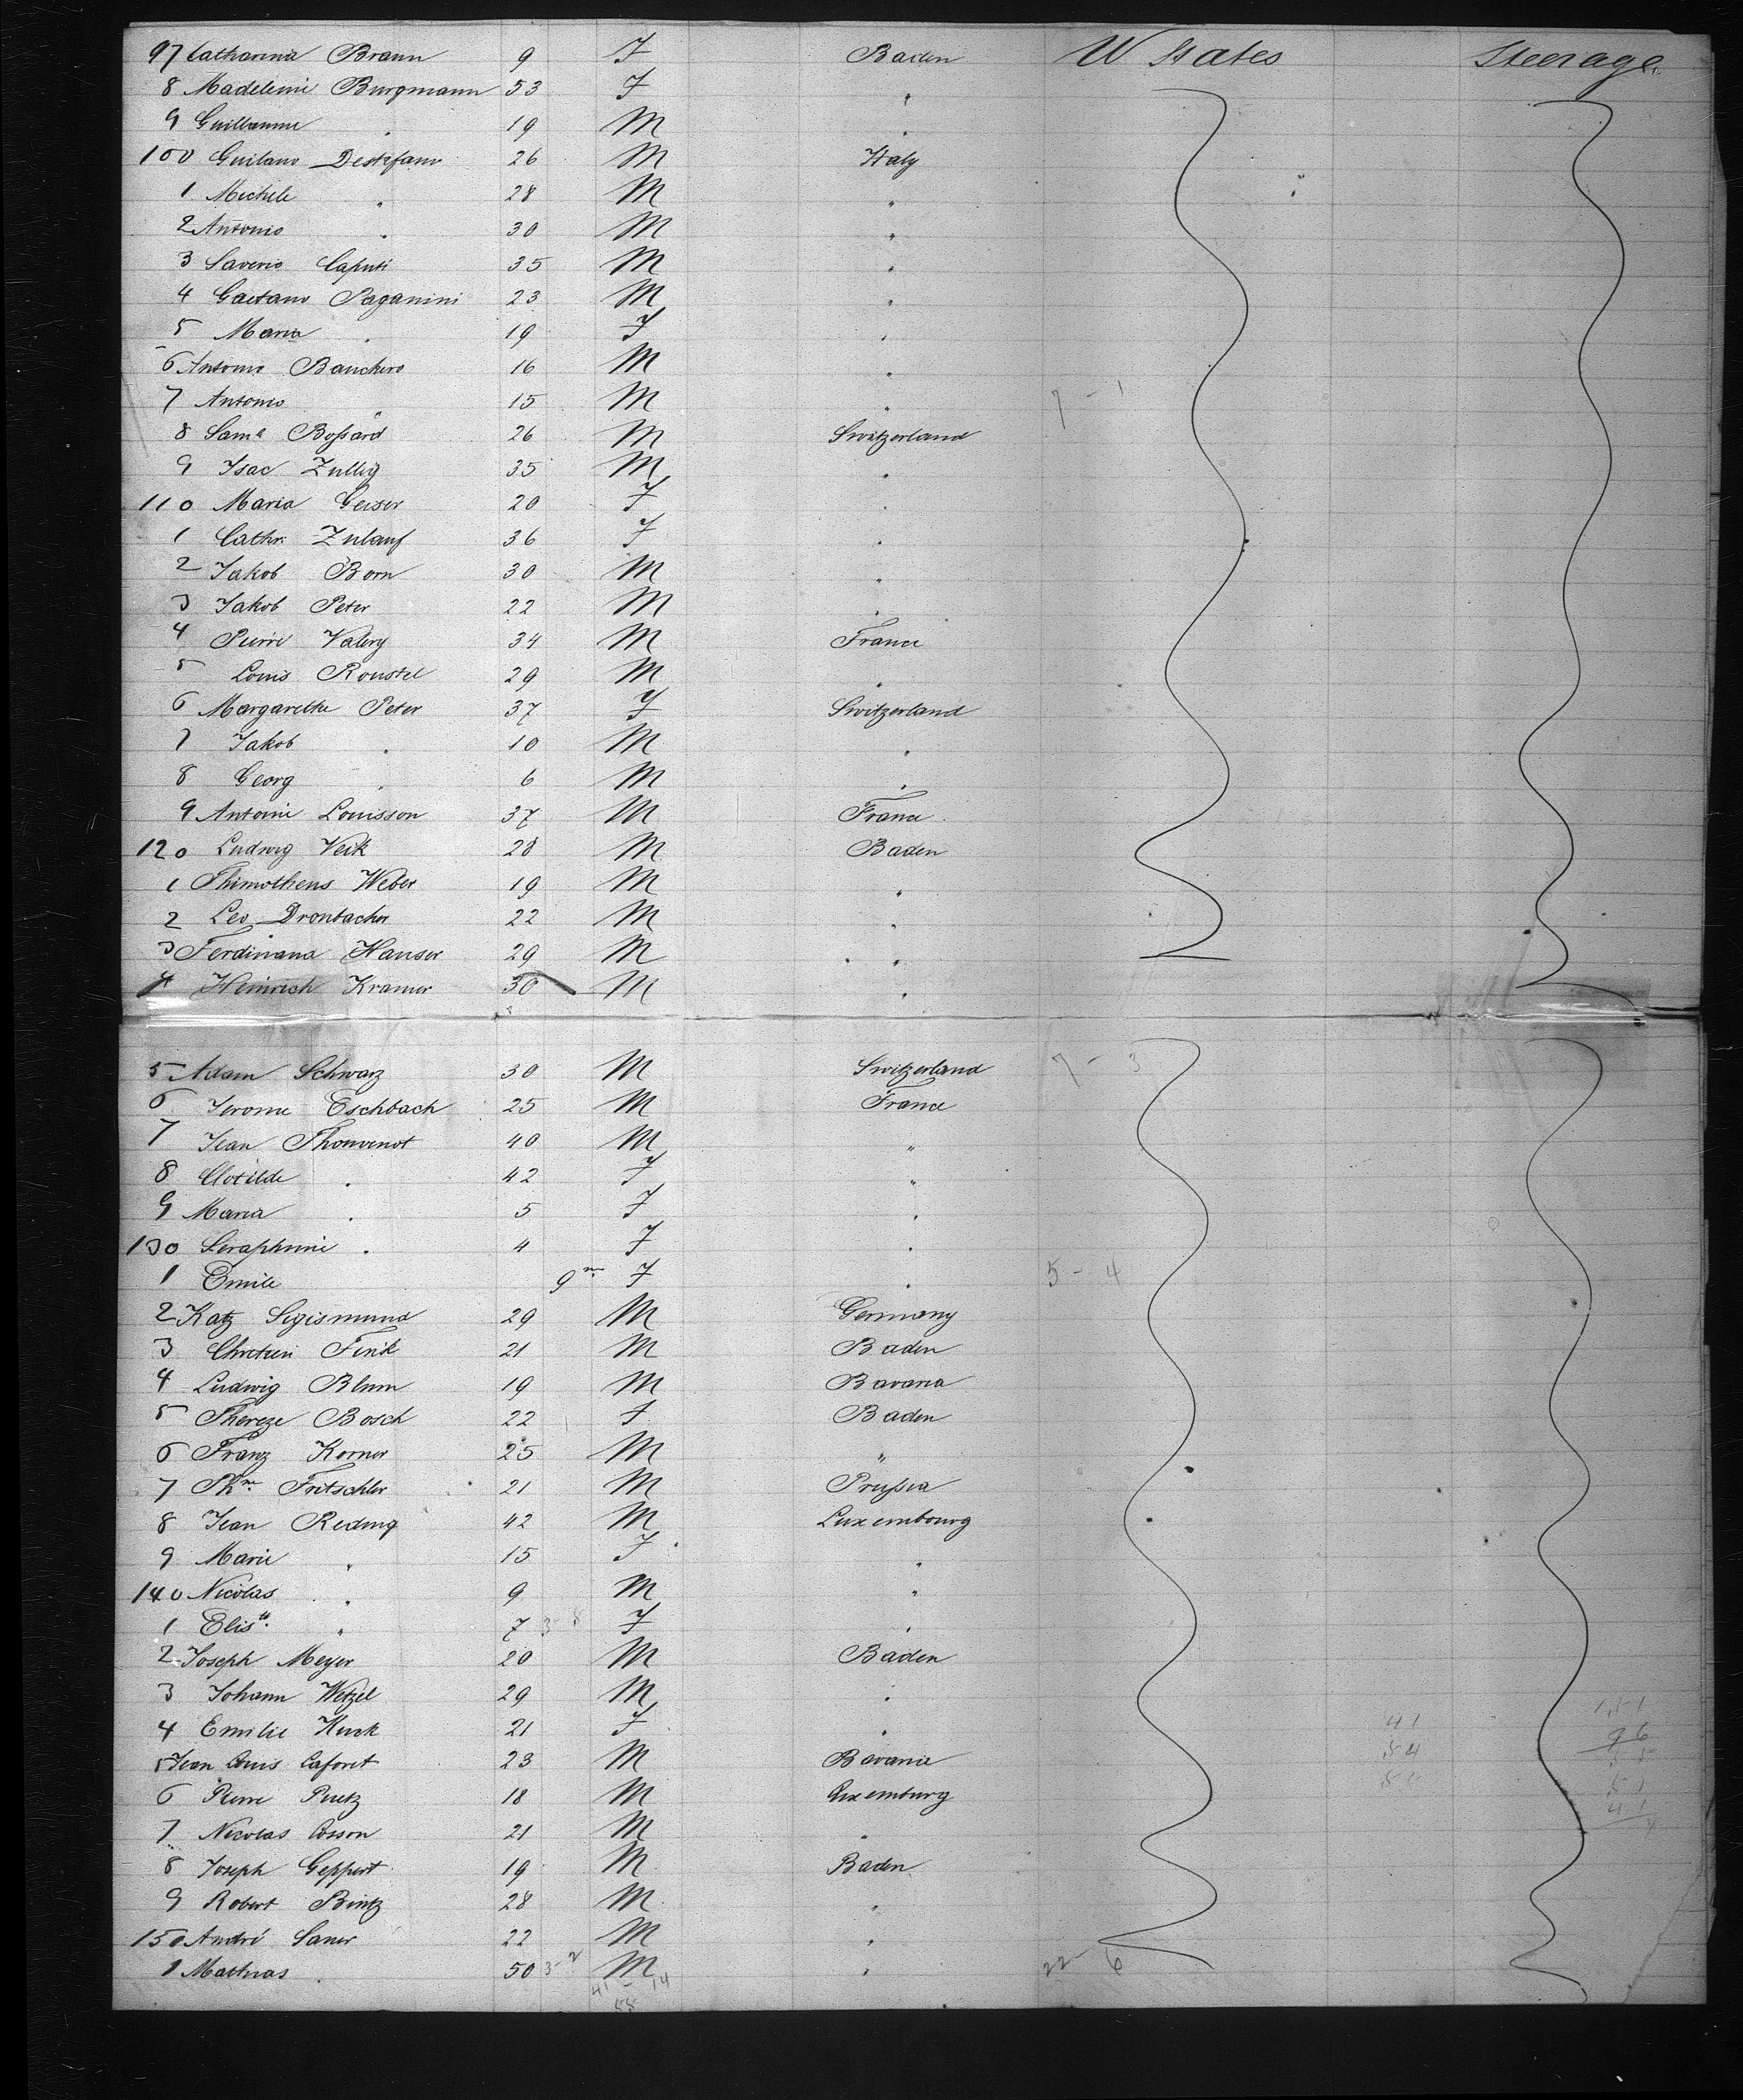 97 Catharina Braun 9 F Baden U States Steerage
8 Madeleine Burgmann 53 F "
9 Guillaume " 19 M "
100 Guilano Destefano 26 M Italy
1 Michele " 28 M "
2 Antonio " 30 M "
3 Saverio Caputi 35 M "
4 Gaetano Paganini 23 M "
5 Maria " 19 F "
6 Antonio Banchero 16 M "
7 Antonio " 15 M " 7 - 1
8 Saml Bossard 26 M Switzerland
9 Isac Zullig 35 M "
110 Maria Geiser 20 F "
1 Cathr. Zulauf 36 F "
2 Jakob Born 30 M "
3 Jakob Peter 22 M "
4 Pierre Valery 34 M France
5 Louis Roustel 29 M "
6 Margarethe Peter 37 F Switzerland
7 Jakob " 10 M "
8 Georg " 6 M "
9 Antoine Louisson 37 M France
120 Ludwig Veik 28 M Baden
1 Thimotheus Weber 19 M "
2 Leo Dronbacher 22 M "
3 Ferdinand Hauser 29 M "
4 Heinrich Kramer 30 M "
5 Adam Schwarz 30 M Switzerland 7 - 3
6 Jerome Eschbach 25 M France
7 Jean Thouvenot 40 M "
8 Clotilde " 42 F "
9 Maria " 5 F "
130 Seraphine " 4 F "
1 Emile 9 m F " 5 - 4
2 Katz Sigismund 29 M Germany
3 Chretien Fink 21 M Baden
4 Ludwig Blum 19 M Bavaria
5 Thereze Bosch 22 F Baden
6 Franz Korner 25 M "
7 Phm. Fritschler 21 M Prussia
8 Jean Reding 42 M Luxembourg
9 Marie " 15 F "
140 Nicolas " 9 M "
1 Elisth. " 7 3 - 8 F "
2 Joseph Meyer 20 M Baden
3 Johann Wetzel 29 M "
4 Emilie Kuck 21 F "
5 Jean Louis Laforet 23 M Bavaria
6 Pierre Puetz 18 M Luxemburg
7 Nicolas Cosson 21 M "
8 Joseph Geppert 19 M Baden
9 Robert Bintz 28 M "
150 André Saner 22 M "
1 Mathias " 50 3 - 2 M " 22 - 6
41 - 14